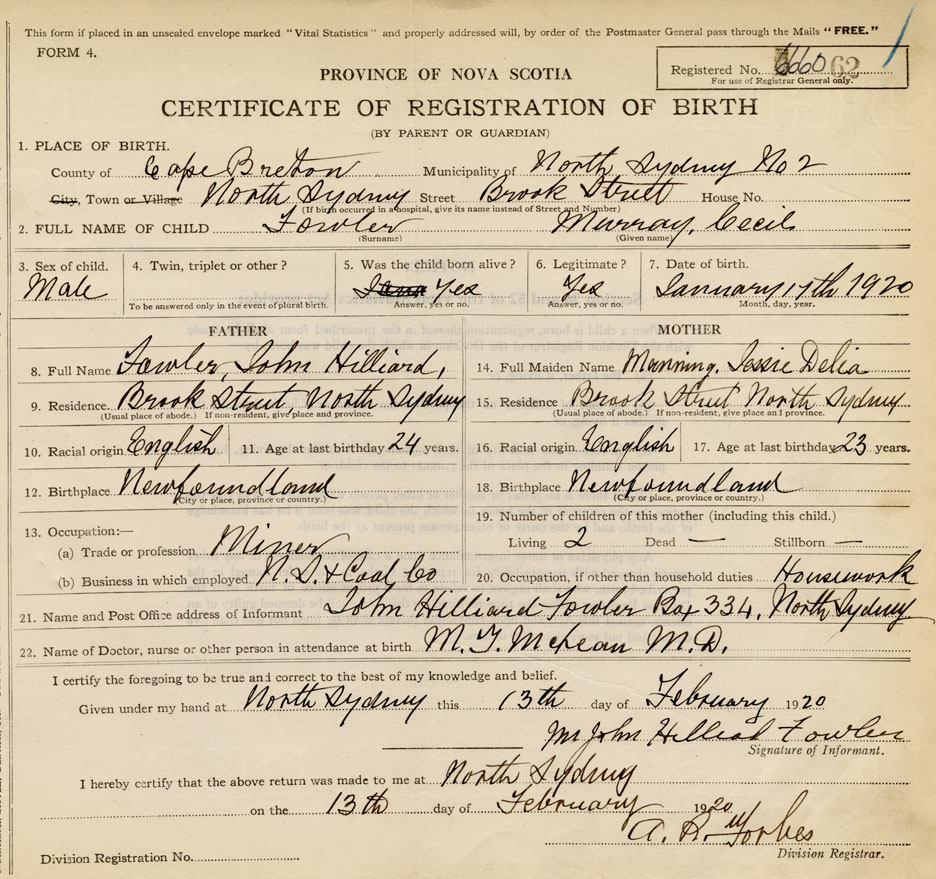 This form if placed in an unsealed envelope marked "Vital Statistics" and properly addressed will, by order of the Postmaster General pass through the Mails "FREE."
FORM 4.
Registered No. 62
For use of Registrar General only.
PROVINCE OF NOVA SCOTIA
CERTIFICATE OF REGISTRATION OF BIRTH
(BY PARENT OR GUARDIAN)
1. PLACE OF BIRTH.
County of Cape Breton Municipality of North Sydney No 2
City, Town or Village North Sydney Street Brook Street House No.
(If birth occurred in a hospital, give its name instead of Street and Number)
2. FULL NAME OF CHILD Fowler Murray, Cecil
(Surname) (Given name)
3. Sex of child. 4. Twin, triplet or other? 5. Was the child born alive? 6. Legitimate? 7. Date of birth.
Male Yes Yes January 17th 1920
To be answered only in the event of plural birth. Answer, yes or no. Answer, yes or no. Month, day, year.
FATHER
8. Full Name Fowler, John Hilliard,
9. Residence. Brook Street, North Sydney
(Usual place of abode.) If non-resident, give place and province.
10. Racial origin English 11. Age at last birthday 24 years.
12. Birthplace Newfoundland
(City or place, province or country.)
13. Occupation:—
(a) Trade or profession Miner
(b) Business in which employed N. S. & Coal Co
MOTHER
14. Full Maiden Name Manning, Jessie Delia
15. Residence Brook Street North Sydney
(Usual place of abode.) If non-resident, give place and province.
16. Racial origin English 17. Age at last birthday 23 years.
18. Birthplace Newfoundland
(City or place, province or country.)
19. Number of children of this mother (including this child.)
Living 2 Dead — Stillborn —
20. Occupation, if other than household duties Housework
21. Name and Post Office address of Informant John Hilliard Fowler Box 334, North Sydney
22. Name of Doctor, nurse or other person in attendance at birth M. J. McLean M.D.
I certify the foregoing to be true and correct to the best of my knowledge and belief.
Given under my hand at North Sydney this 13th day of February 1920
Mr John Hilliad Fowler
Signature of Informant.
I hereby certify that the above return was made to me at North Sydney
on the 13th day of February 1920
A. R. Forbes
Division Registrar.
Division Registration No.